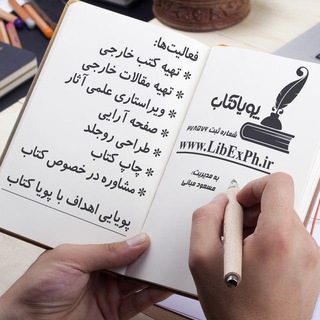 فعالیت‌ها:
* تهیه کتب خارجی
* تهیه مقالات خارجی
* ویراستاری علمی آثار
* صفحه آرایی
* طراحی روجلد
* چاپ کتاب
* مشاوره در خصوص کتاب
پویایی اهداف با پویا کتاب
پویاکتاب
شماره ثبت
www.LibExPh.ir
به مدیریت:
مسعود مبانی